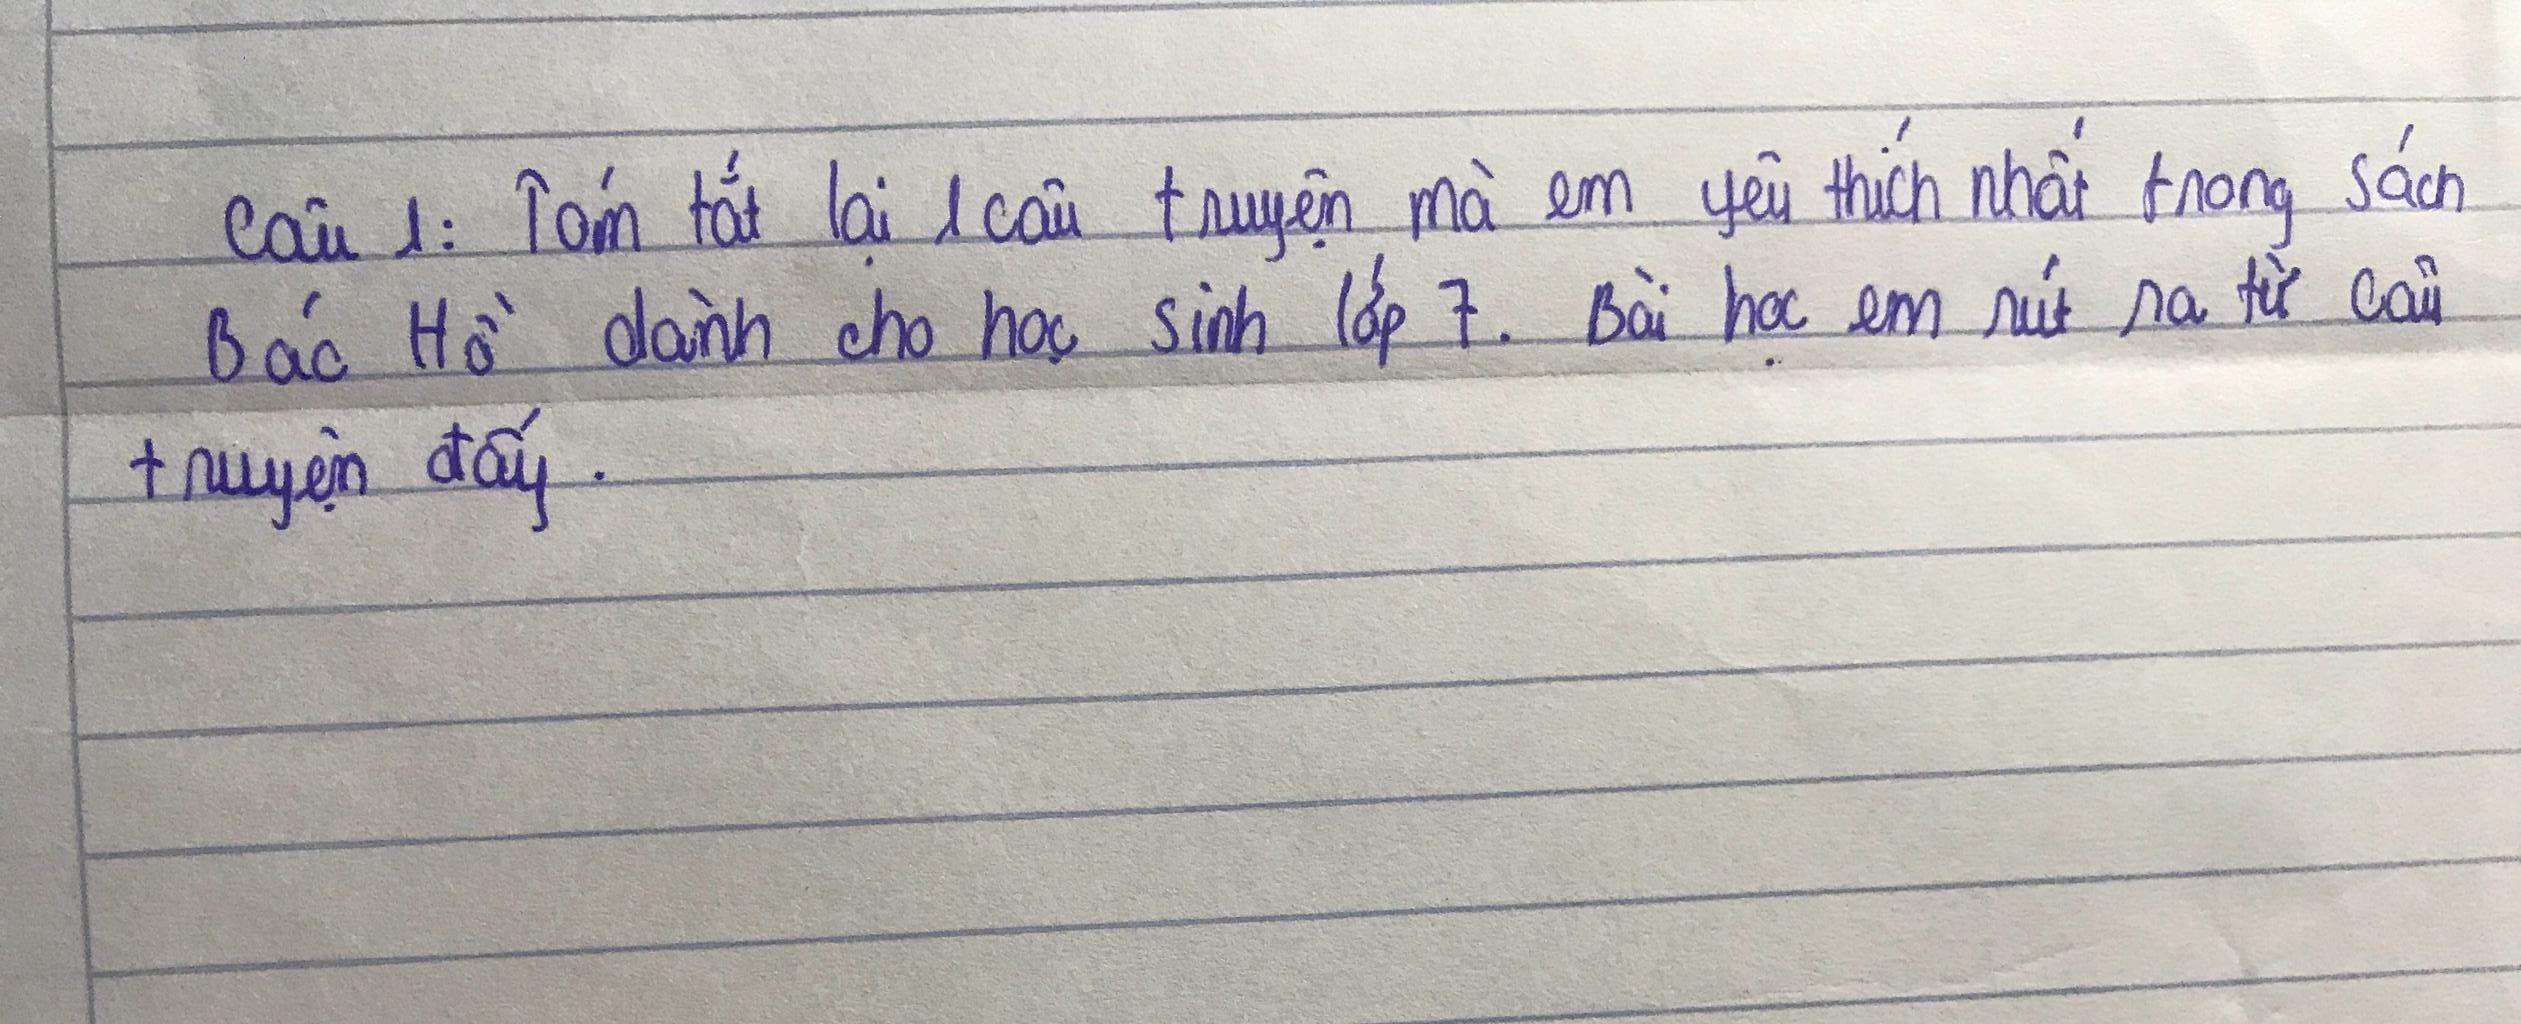 Câu 1: Tóm tắt lại 1 câu truyện mà em yêu thích nhất trong sách
Bác Hồ dành cho học sinh lớp 7. Bài học em rút ra từ câu
truyện đấy.